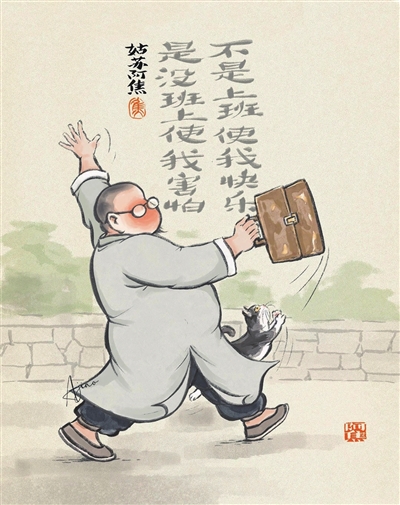 不是上班使我快乐
是没班上使我害怕
姑苏阿焦
焦
Ajiao